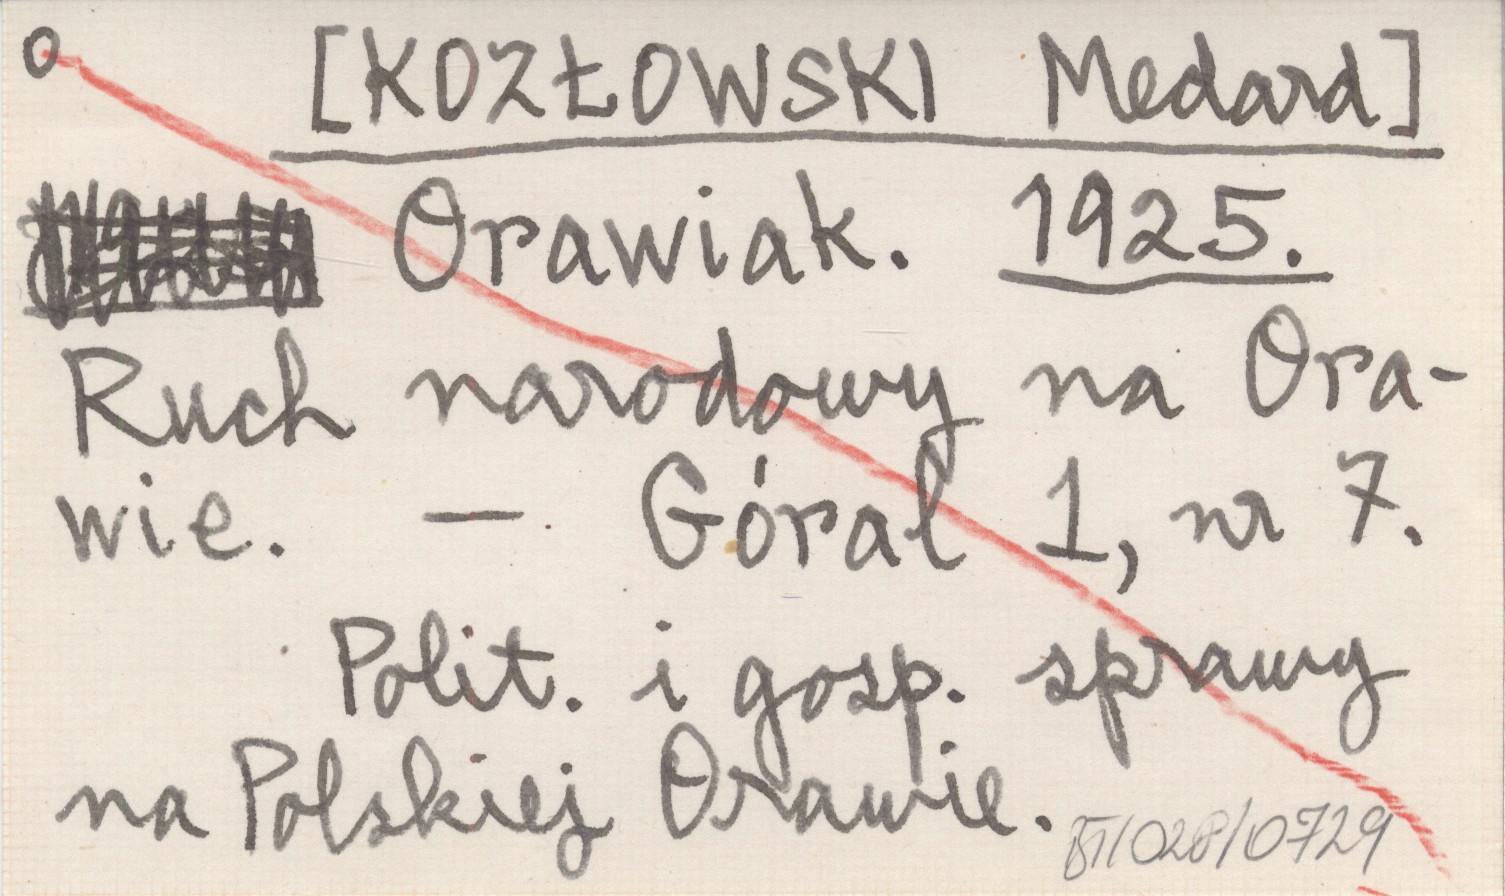 O [KOZŁOWSKI Medard]
Orawiak. 1925.
Ruch narodowy na Ora-
wie. — Góral 1, nr 7.
Polit. i gosp. sprawy
na Polskiej Orawie.
BT/028/0729